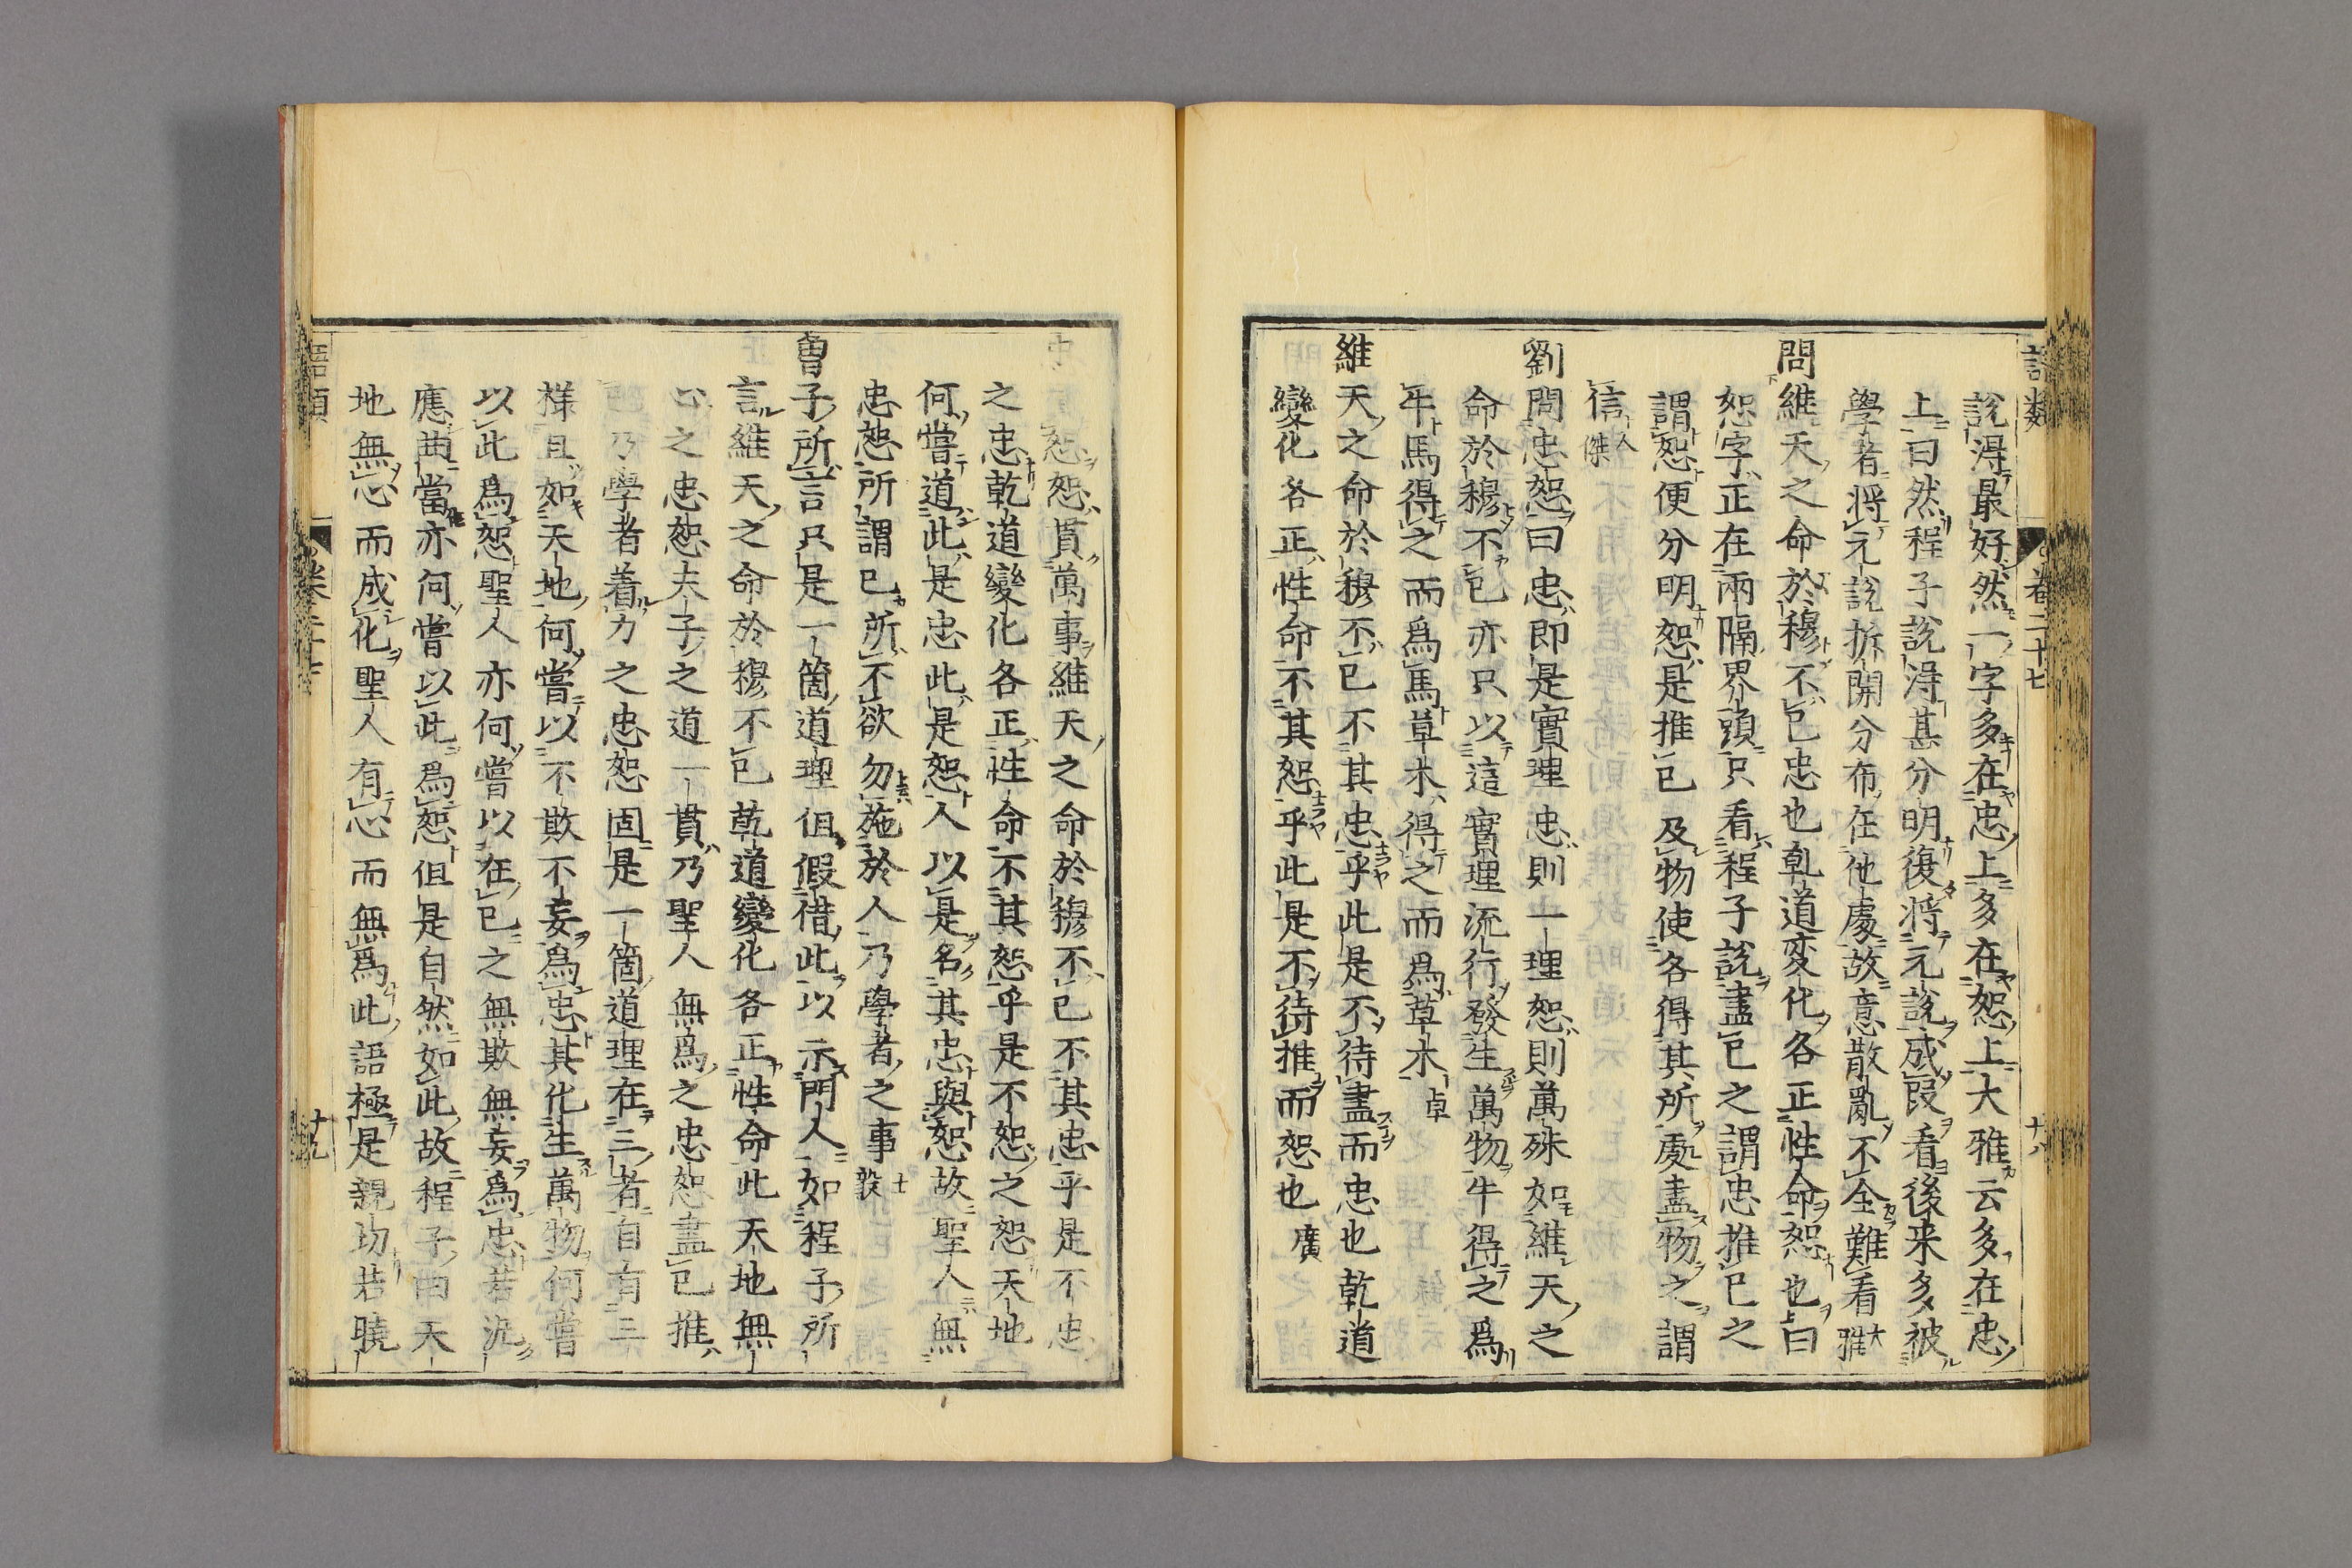 語類 卷二十七 十八
說得最好然一字多在忠上多在恕上大雅云多在忠
上曰然程子說得甚分明復將元說成段看後来多被
學者將元說拆開分布在他處故意散亂不全難看大雅
問維天之命於穆不已忠也乾道変化各正性命恕也曰
恕字正在兩隔界頭只看程子說盡已之謂忠推已之
謂恕便分明恕是推已及物使各得其所處盡物之謂
信人傑
劉問忠恕曰忠即是實理忠則一理恕則萬殊如維天之
命於穆不已亦只以這實理流行發生萬物牛得之爲
牛馬得之而爲馬草木得之而爲草木卓
維天之命於穆不已不其忠乎此是不待盡而忠也乾道
變化各正性命不其恕乎此是不待推而恕也廣
恕恕貫萬事維天之命於穆不已不其忠乎是不忠
之忠乾道變化各正性命不其恕乎是不恕之恕天地
何嘗道此是忠此是恕人以是名其忠與恕故聖人無
忠恕所謂已所不欲勿施於人乃學者之事士毅
曾子所言只是一箇道理但假借此以示門人如程子所
言維天之命於穆不已乾道變化各正性命此天地無
心之忠恕夫子之道一貫乃聖人無爲之忠恕盡已推
已乃學者着力之忠恕固是一箇道理在三者自有三
様且如天地何嘗以不欺不妄爲忠其化生萬物何嘗
以此爲恕聖人亦何嘗以在已之無欺無妄爲忠若汎
應曲當亦何嘗以此爲恕但是自然如此故程子曰天
地無心而成化聖人有心而無爲此語極是親切若曉
語類 卷二十七 十九